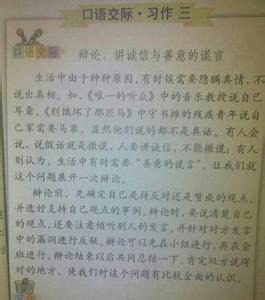 口语交际·习作 三
口语交际
辩论：讲诚信与善意的谎言
生活中由于种种原因，有时候需要隐瞒真情，不
说出真相。如，《唯一的听众》中的音乐教授说自己
耳聋，《别饿坏了那匹马》中守书摊的残疾青年说自
己家需要马草，显然他们说的都不是真话。有人会
说，说假话就是撒谎，人要讲诚信，不能撒谎；有人
则认为，生活中有时需要“善意的谎言”。让我们就
这个问题展开一次辩论。
辩论前，先确定自己是持反对还是赞成的观点，
并选好支持自己观点的事例。辩论时，要说清楚自己
的观点，还要注意倾听别人的发言，并针对对方发言
中的漏洞进行反驳。辩论可以先在小组进行，再在全
班进行。辩论结束以后共同总结一下，肯定双方说得
对的地方，使我们对这个问题有比较全面的认识。